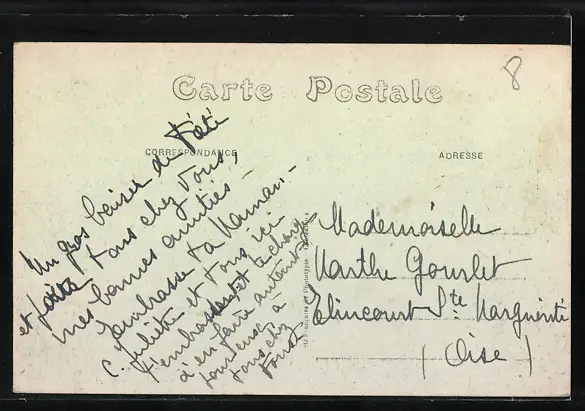 Carte Postale
8
CORRESPONDANCE
ADRESSE
Un gros baiser de Tété
et pour tous chez vous,
mes bonnes amitiés -
J'embrasse ta Maman -
C. Juliette et tous ici
t'embrassent te charge
d'en faire autant
tous chez
vous
Mademoiselle
Marthe Gourlet
Élincourt Ste Marguerite
(Oise)